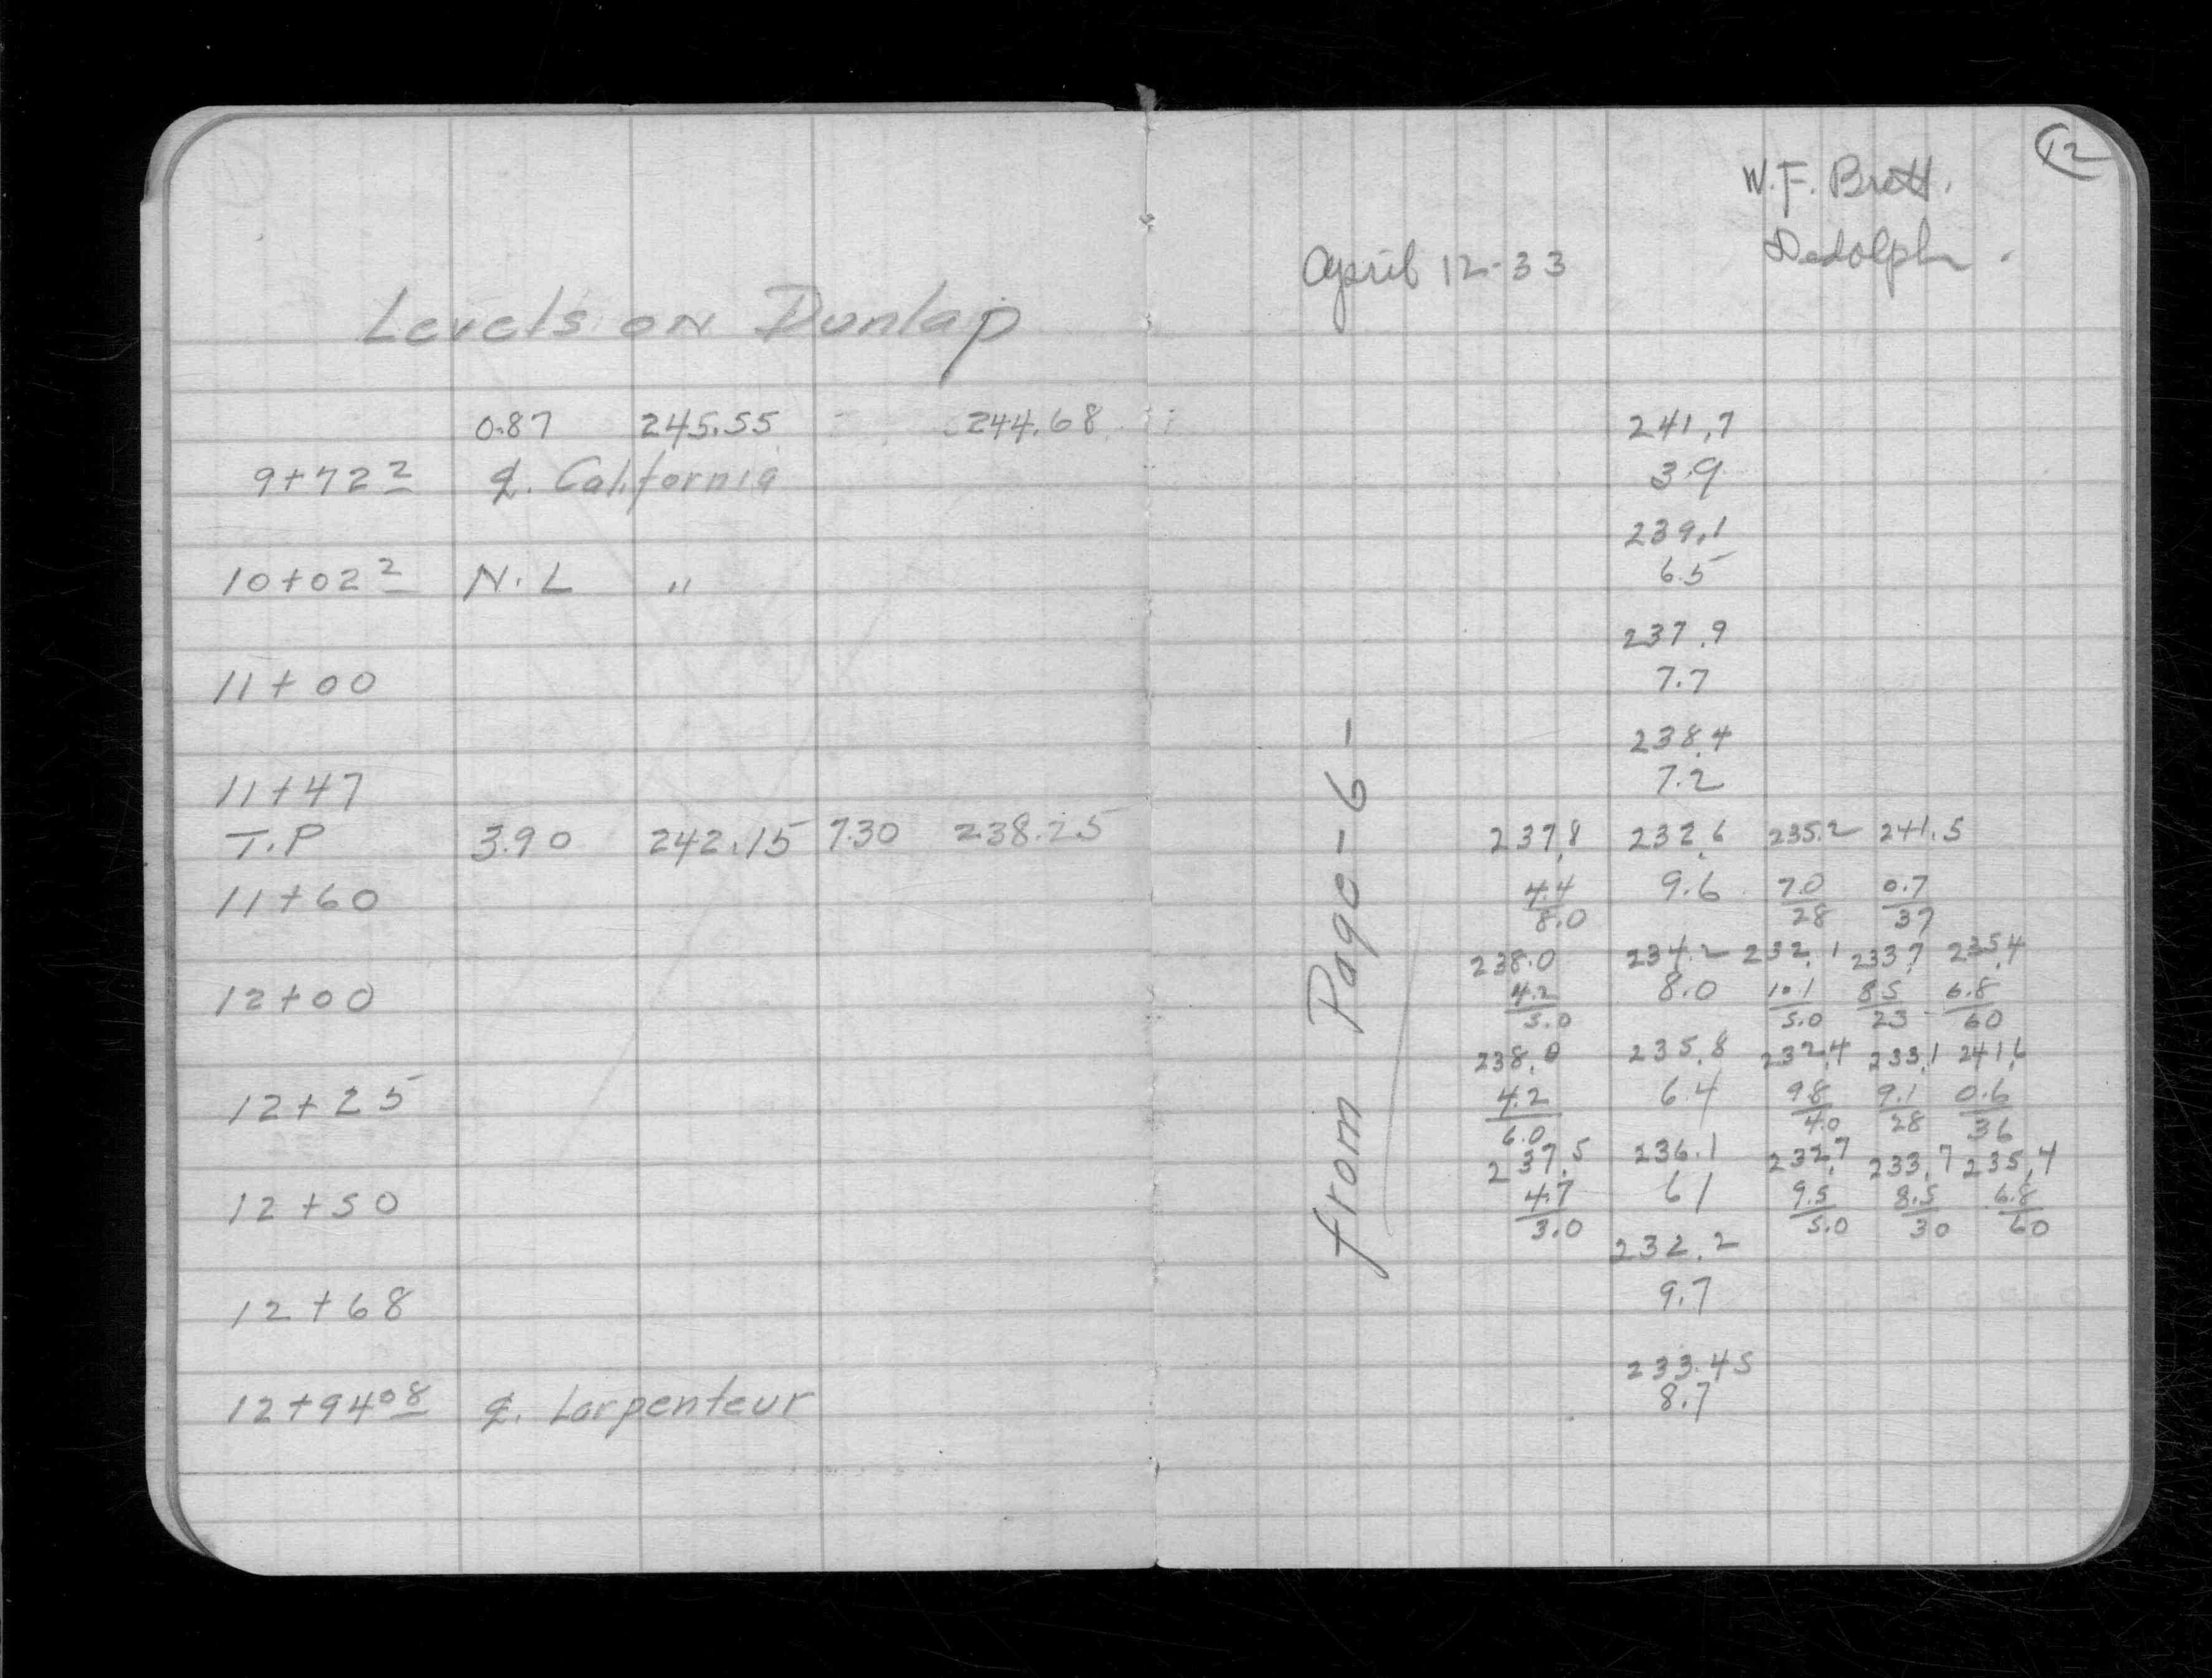 Levels on Dunlap
0.87 245.55 244.68
9+72² ℄. California
10+02² N.L "
11+00
11+47
T.P 3.90 242.15 7.30 238.25
11+60
12+00
12+25
12+50
12+68
12+94⁰⁸ ℄. Larpenteur
12
W.F. Brett.
Dedolph.
April 12-33
from Page-6-
241.7
3.9
239.1
6.5
237.9
7.7
238.4
7.2
237.8 232.6 235.2 241.5
4.4 9.6 7.0 0.7
8.0 28 37
238.0 234.2 232.1 233.7 235.4
4.2 8.0 10.1 8.5 6.8
5.0 5.0 23 60
238.0 235.8 232.4 233.1 241.6
4.2 6.4 9.8 9.1 0.6
6.0 4.0 28 36
237.5 236.1 232.7 233.7 235.4
4.7 61 9.5 8.5 6.8
3.0 5.0 30 60
232.2
9.7
233.45
8.7